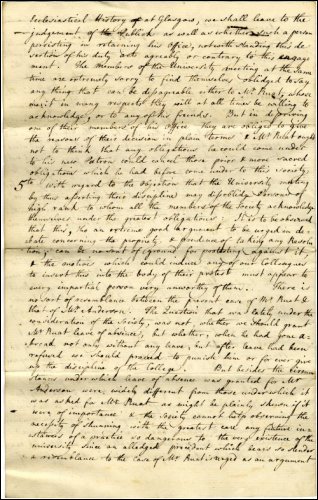 Ecclesiastical History of at Glasgow, we shall leave to the
judgement of the Publick as well as whether such a person
persisting in retaining his Office, notwithstanding this de-
sertion of his duty acts agreably or contrary to this engage
ment. The Members of the University meeting at the same
time are extremely sorry to find themselves obliged to say
any thing that can be disparageable either to Mr Ruat, whose
merit in many respects they will at all times be willing to
acknowledge, or to any of his friends. But in depriving
one of their members of this Office they are obliged to give
the reasons of their decision in plain terms & Mr Ruat ought
not to think that any obligations he could come under
to his new Patron could cancel those prior & more sacred
obligations which he had before come under to this Society.
5to with regard to the Objection that the University meeting
by thus asserting their discipline may disoblige several of
high rank to whom all the members of the Society acknowledge
themselves under the greatest obligations. It is to be observed
that this, tho an extreme good argument to be urged in de-
bate concerning the propriety & prudence of taking any Resolu
tion, can be no sort of ground for protesting against it,
& the motives which could induce any of our Colleagues
to insert this into the body of their protest must appear to
every impartial person very unworthy of them. There is
no sort of resemblance between the present case of Mr Ruat &
that of Mr Anderson. The Question that was lately under the
consideration of the Society, was not, whether we should grant
Mr Ruat leave of absence, but whether, when he had gone a-
broad not only without any leave, but after leave had been
refused we should proceed to punish him or for ever give
up the discipline of the College. But besides the Circum-
stances under which leave of absence was granted for Mr
Anderson were widely different from those under which it
was asked for Mr Ruat as could be plainly shown if it
were of importance & the Society cannot help observing the
necessity of shunning with the greatest care any future in-
stances of a practice so dangerous to the very existence of the
university since an alledged precedent which bears so slender
a resemblance to the case of Mr Ruat is urged as an argument